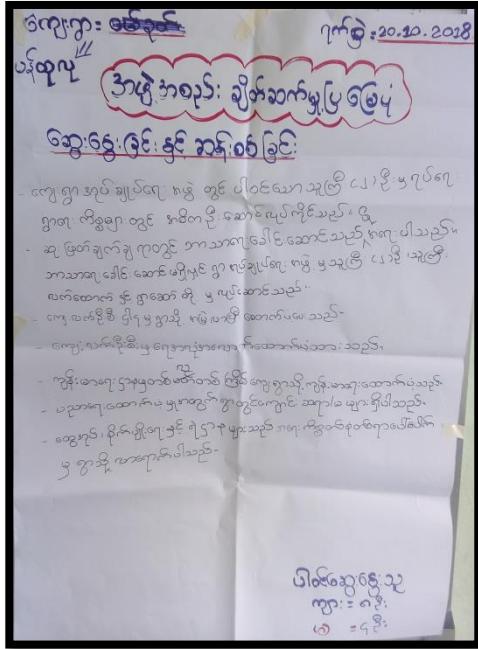 ကျေးရွာ:
ရက်စွဲ: 20.10.2018
ပန်ထုလု
အဖွဲ့အစည်း ချိတ်ဆက်မှုပြမြေပုံ
ဆွေးနွေးခြင်းနှင့် ဆန်းစစ်ခြင်း
- ကျေးရွာအုပ်ချုပ်ရေး အဖွဲ့ တွင် ပါဝင်သော သူကြီး (၂) ဦး မှ ရပ်ရေး
ရွာရေး ကိစ္စများ တွင် အဓိက ဦးဆောင်လုပ်ကိုင်သည်။
- ဆုံးဖြတ်ချက်ချရာတွင် ဘာသာရေးခေါင်းဆောင်သည် အရေးပါသည်။
ဘာသာရေး ခေါင်းဆောင် မရှိလျှင် ရွာအုပ်ချုပ်ရေး အဖွဲ့ မှ သူကြီး (၂) ဦး သူကြီး
လက်ထောက် နှင့် ရွာဆော် တို့ မှ လုပ်ဆောင်သည်။
- ကျေးလက်ဦးစီးဌါနမှ ရွာသို့
- ကျေးလက်ဦးစီးမှ ထောက်ပံ့ထားသည်။
- ကျန်းမာရေးဌာနမှ တစ်လတစ်ကြိမ် ကျေးရွာသို့ ကျန်းမာရေးထောက်ပံ့သည်။
- ပညာရေးထောက်ပံ့မှုအတွက် ရွာတွင်ကျောင်း ဆရာ/မ များရှိပါသည်။
- ထွေအုပ်၊ စိုက်ပျိုးရေး နှင့် ရဲဌာနများသည် အရေးကိစ္စတစ်စုံတစ်ရာပေါ်ပေါက်
မှ ရွာသို့ လာရောက်ပါသည်။
ပါဝင်ဆွေးနွေးသူ
ကျား = ၈ဦး
(မ) = ၄ဦး